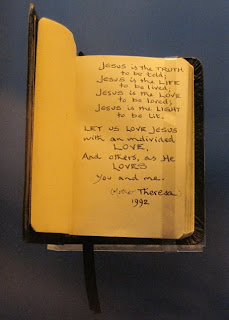 Jesus is the TRUTH
to be told,
Jesus is the LIFE
to be lived,
Jesus is the LOVE
to be loved,
Jesus is the LIGHT
to be lit.
LET US LOVE JESUS
with an undivided
LOVE,
And others, as He
LOVES
you and me.
Mother Theresa
1992